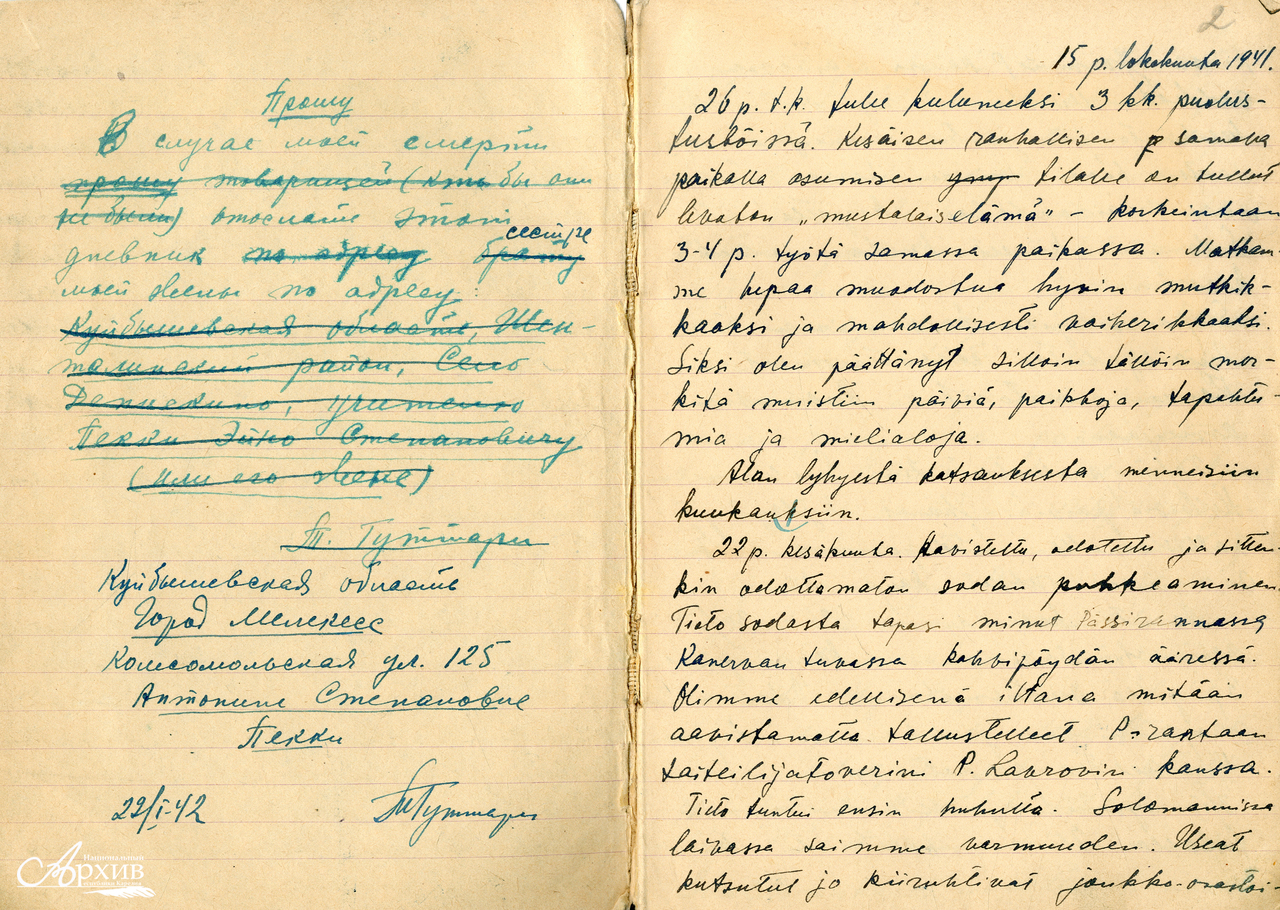 Прошу
В случае моей смерти
прошу товарищей (кто бы они
не были) отослать этот
сестре
дневник по адресу брату
моей жены по адресу:
Куйбышевская область, Шен-
талинский район, Село
Денискино, учителю
Пекки Эйно Степановичу
(или его жене)
Т. Гуттари
Куйбышевская область
Город Мелекесс
Комсомольская ул. 125
Антонине Степановне
Пекки
22/I-42
ТГуттари
Национальный
Архив
Республики Карелия
2
15 p. lokakuuta 1941.
26 p. t.k. tulee kuluneeksi 3 kk. puolus-
tustöissä. Kesäisen rauhallisen samalla
paikalla asumisen tilalle on tullut
levoton „mustalaiselämä" – korkeintaan
3-4 p. työtä samassa paikassa. Matkam-
me lupaa muodostua hyvin mutkik-
kaaksi ja mahdollisesti vaiherikkaaksi.
Siksi olen päättänyt silloin tällöin mer-
kitä muistiin päiviä, paikkoja, tapahtu-
mia ja mielialoja.
Alan lyhyestä katsauksesta menneisiin
kuukauksiin.
22 p. kesäkuuta. Aavistettu, odotettu ja sitten-
kin odottamaton sodan puhkeaminen.
Tieto sodasta tapasi minut Pässirannassa
Kanervan tuvassa kahvipöydän ääressä.
Olimme edellisenä iltana mitään
aavistamatta tallustelleet P-rantaan
taiteilijatoverini P. Lavrovin kanssa.
Tieto tuntui ensin huhulta. Solomannissa
laivassa saimme varmuuden. Useat
kutsutut jo kiiruhtivat joukko-osastoi-